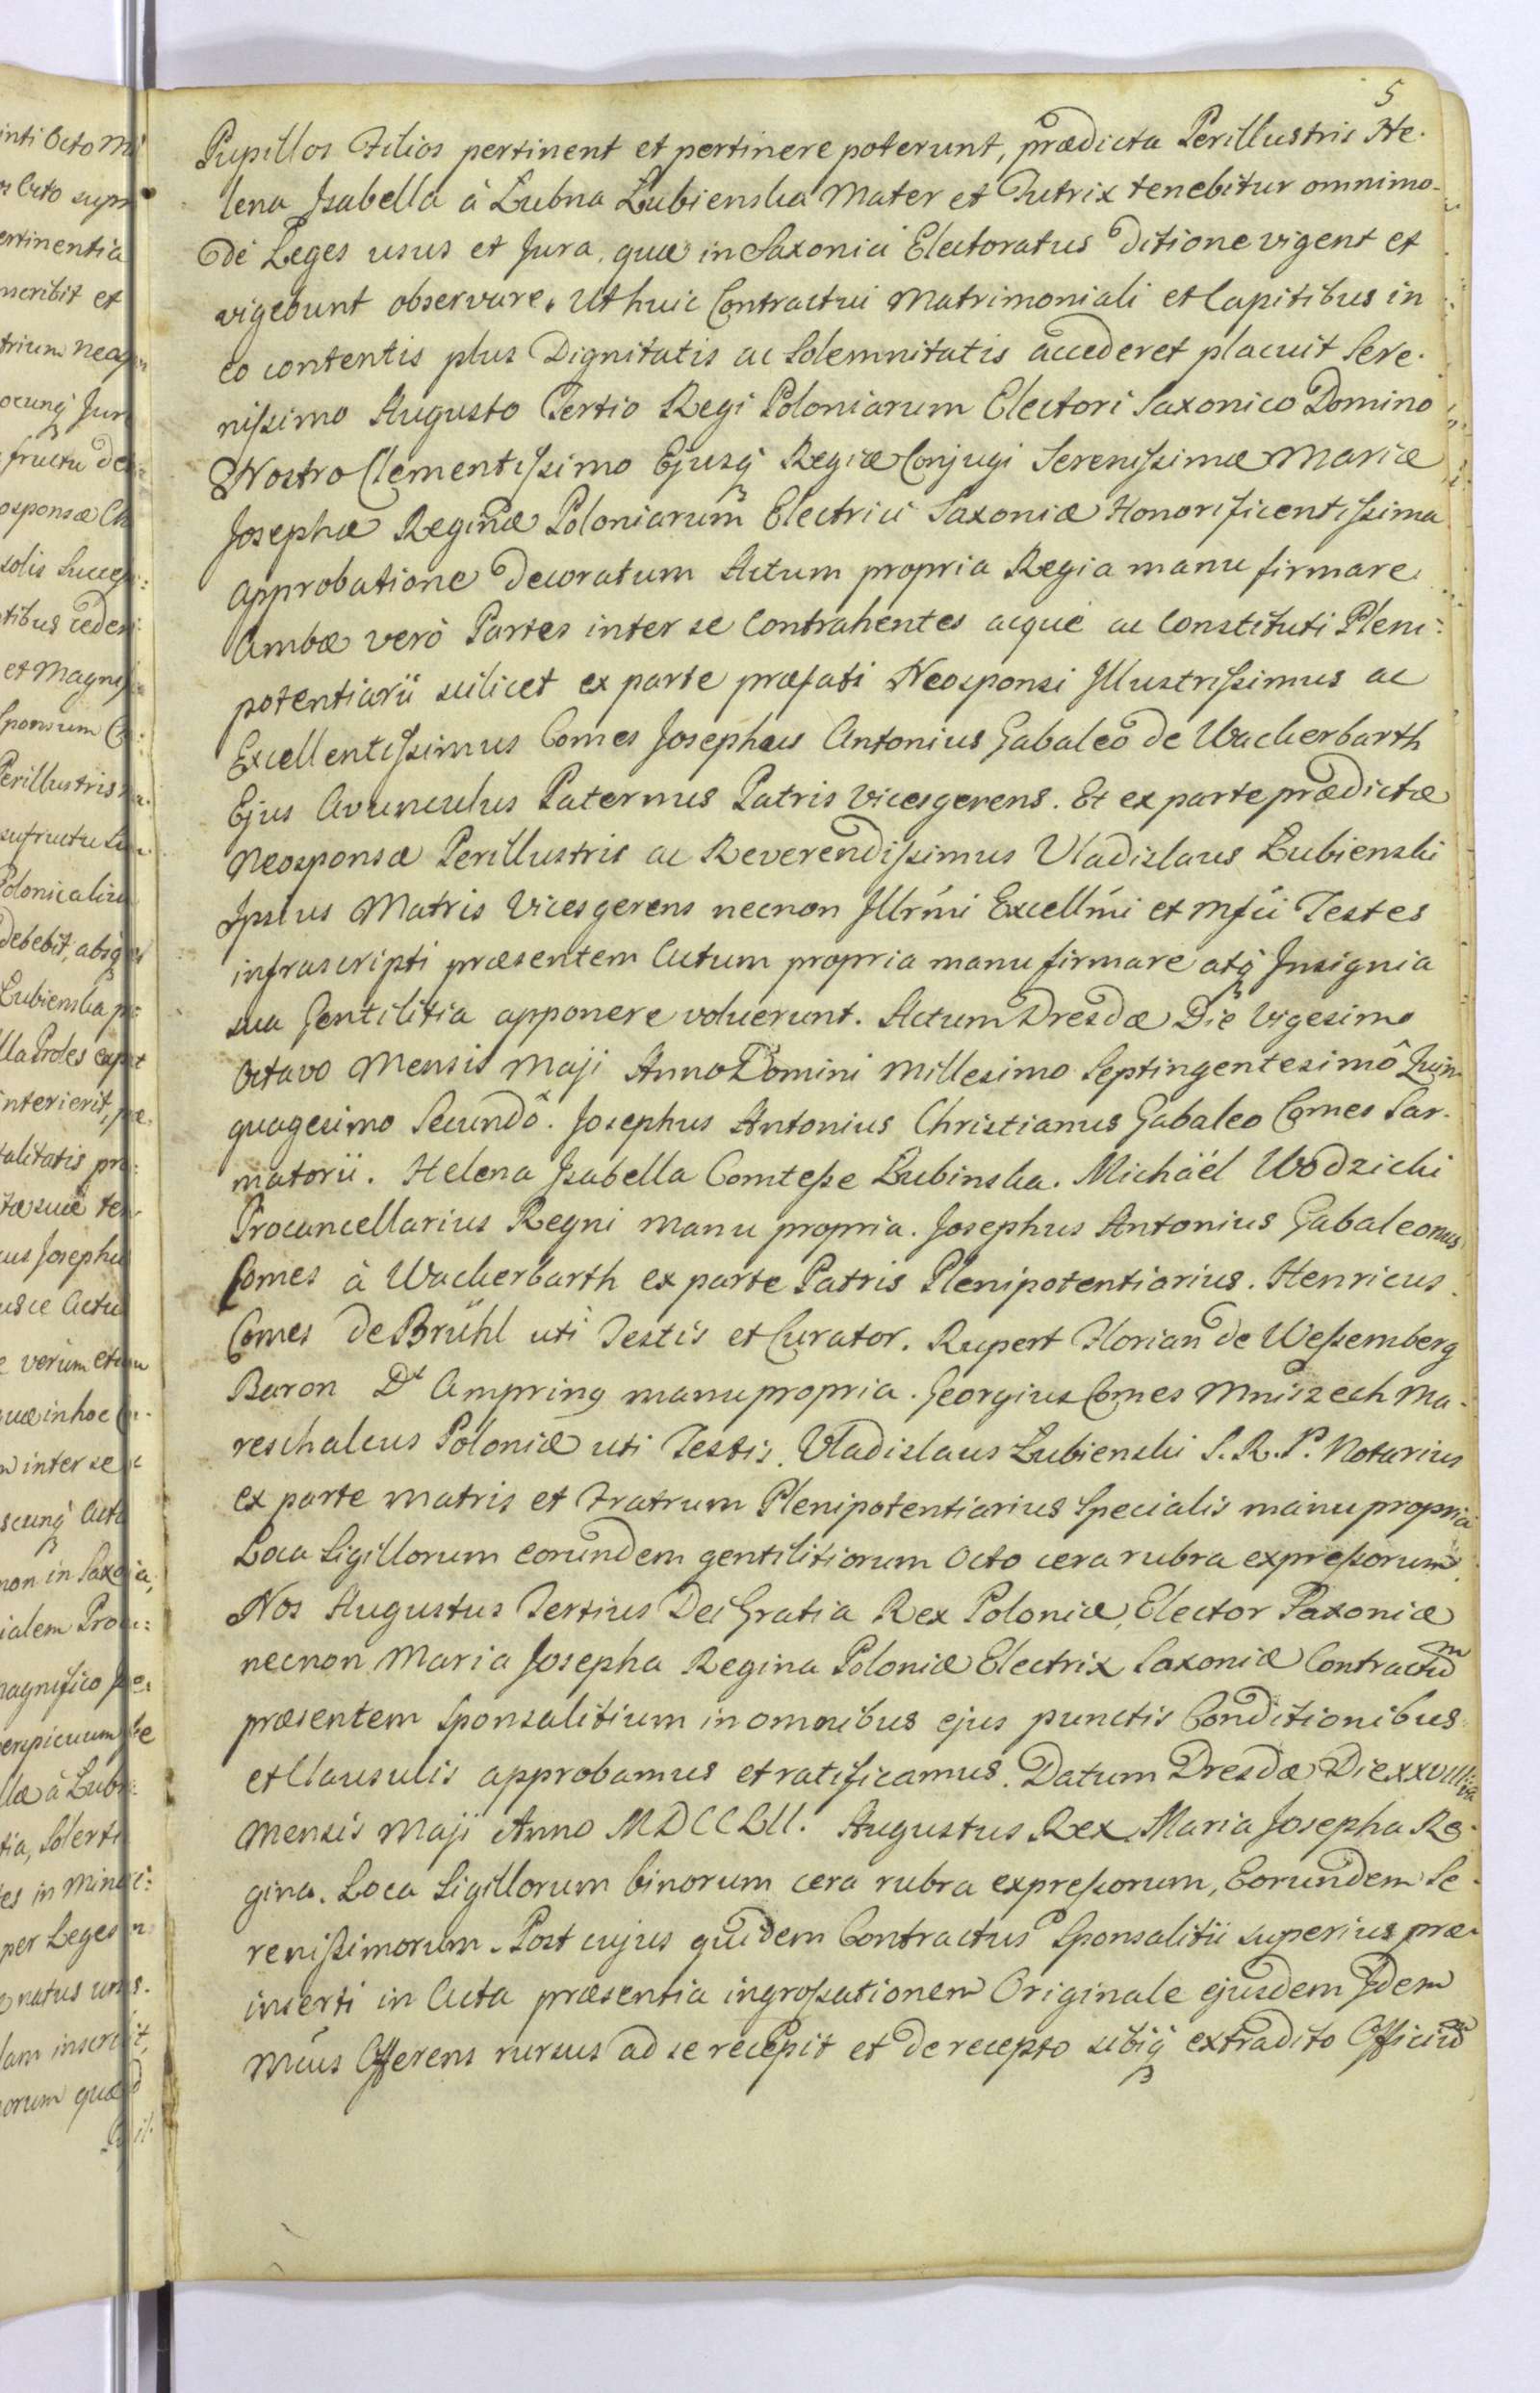 5
Pupillos Filios pertinent et pertinere poterunt, prædicta Perillustris He-
lena Isabella à Łubna Łubienska Mater et Tutrix tenebitur omnimo-
dè Leges usus et Jura, quæ in Saxonici Electoratus ditione vigent et
vigebunt observare. Ut huic Contractui Matrimoniali et Capitibus in
eo contentis plus Dignitatis ac Solemnitatis accederet placuit Sere-
nissimo Augusto Tertio Regi Poloniarum Electori Saxonico Domino
Nostro Clementissimo Ejusq́ Regiæ Conjugi Serenissimæ Mariæ
Josephæ Reginæ Poloniarum Electrici Saxoniæ Honorificentissima
approbatione decoratum Actum propria Regia manu firmare
Ambæ verò Partes inter se Contrahentes æque ac Constituti Pleni-
potentiarii scilicet ex parte præfati Neosponsi Illustrissimus ac
Excellentissimus Comes Josephus Antonius Gabaleo de Wackerbarth
Ejus Avunculus Paternus Patris vicesgerens. Et ex parte prædictæ
Neosponsæ Perillustris ac Reverendissimus Vladislaus Łubienski
Ipsius Matris Vicesgerens necnon Illrḿi Excellḿi et Mfići Testes
infrascripti præsentem Actum propria manu firmare atq́ Insignia
sua Gentilitia apponere voluerunt. Actum Dresdæ Die Vigesimo
Octavo Mensis Maji Anno Domini Millesimo Septingentesimô Quin-
quagesimo Secundô. Josephus Antonius Christianus Gabaleo Comes Sar-
matorii. Helena Isabella Comtesse Łubinska. Michäel Wodzicki
Procancellarius Regni manu propria. Josephus Antonius Gabaleonus
Comes à Wackerbarth ex parte Patris Plenipotentiarius. Henricus
Comes de Brühl uti Testis et Curator. Rupert Florian de Wessemberg
Baron Dt Ampring manu propria. Georgius Comes Mniszech Ma-
reschalcus Poloniæ uti Testis. Vladislaus Łubienski S. R. P. Notarius
ex parte Matris et Fratrum Plenipotentiarius Specialis manu propria
Loca Sigillorum eorundem gentilitiorum Octo cera rubra expressorum.
Nos Augustus Tertius Dei Gratia Rex Poloniæ, Elector Saxoniæ
necnon Maria Josepha Regina Poloniæ Electrix Saxoniæ Contractum
præsentem Sponsalitium in omnibus ejus punctis Conditionibus
et Clausulis approbamus et ratificamus. Datum Dresdæ Die XXVIIIva
Mensis Maji Anno MDCCLII. Augustus Rex, Maria Josepha Re-
gina. Loca Sigillorum binorum cera rubra expressorum, Eorundem Se-
renissimorum. Post cujus quidem Contractus Sponsalitii superius præ-
inserti in Acta præsentia ingrossationem Originale ejusdem Idem
Mćus Offerens rursus ad se recepit et de recepto sibiq́ extradito Officiũ